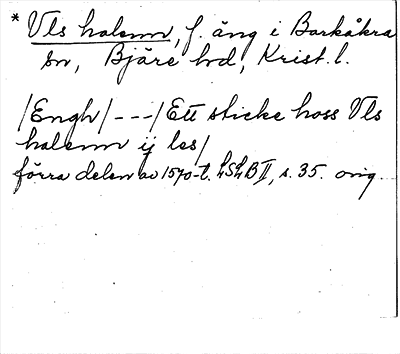 * Vls halenn, f. äng i Barkåkra
sn, Bjäre hd, Krist. l.
/Engh/---/Ett sticke hoss Vls
halenn ij les/
förra delen av 1570-t. LSLB II, s. 35. orig.